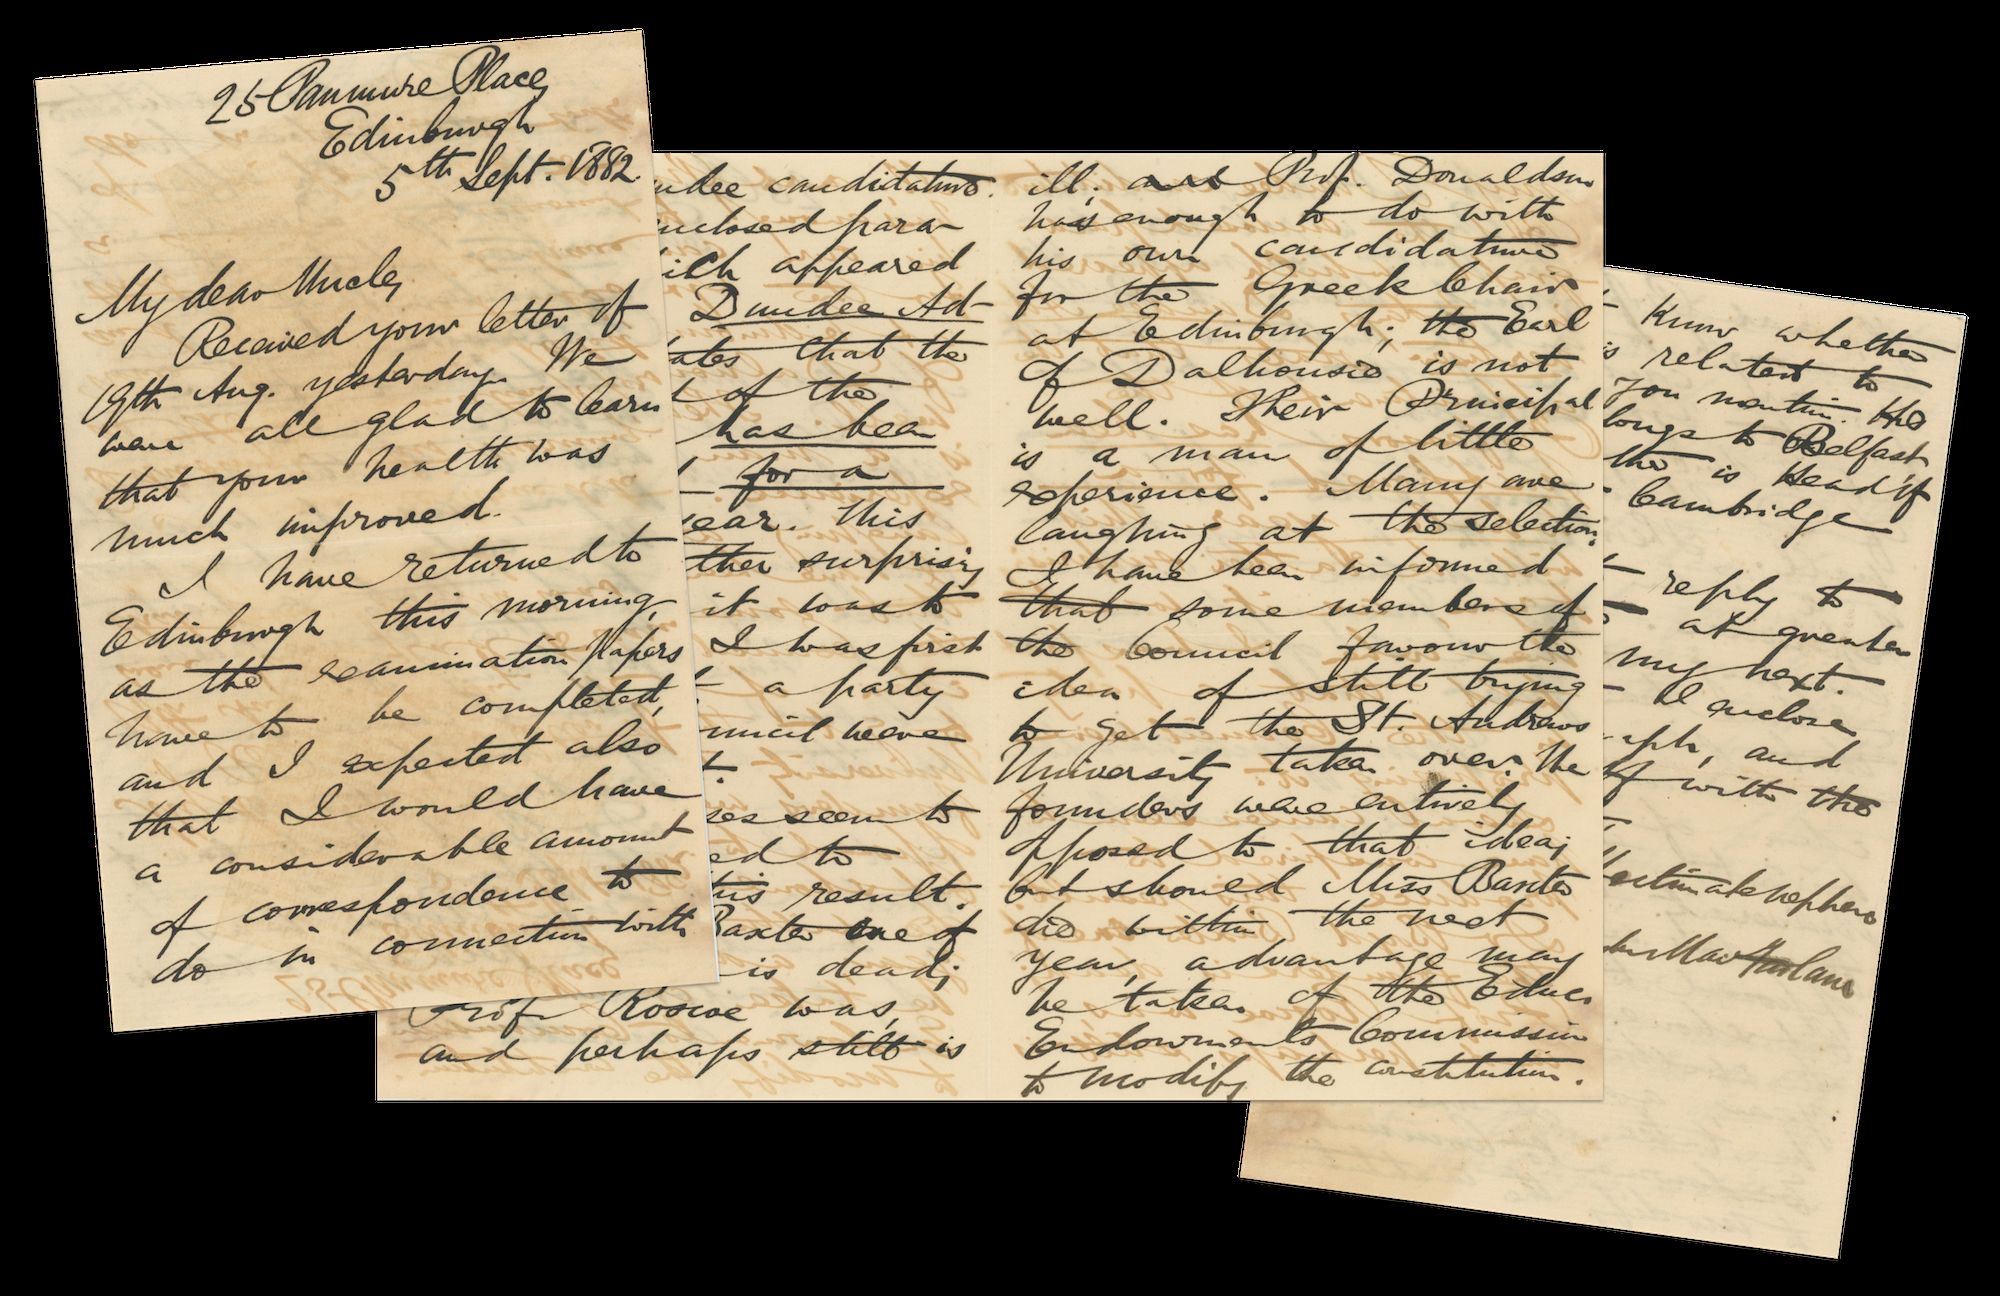 25 Panmure Place,
Edinburgh
5th Sept. 1882.
My dear Uncle,
Received your letter of
19th Aug. yesterday. We
were all glad to learn
that your health was
much improved.
I have returned to
Edinburgh this morning,
as the examination papers
have to be completed,
and I expected also
that I would have
a considerable amount
of correspondence to
do in connection with
ndee candidature.
nclosed para-
ich appeared
Dundee Ad-
ates that the
t of the
has been
for a
ear. This
ther surprising
it was to
I was first
a party
uncil were
ses seem to
ed to
this result.
Baxter one of
is dead;
Prof. Roscoe was,
and perhaps still is
ill; and Prof. Donaldson
has enough to do with
his own candidature
for the Greek Chair
at Edinburgh; the Earl
of Dalhousie is not
well. Their Principal
is a man of little
experience. Many are
laughing at the selection.
I have been informed
that some members of
the Council favour the
idea of still trying
to get the St. Andrews
University taken over. The
founders were entirely
opposed to that idea;
but should Miss Baxter
die within the next
year, advantage may
be taken of the Educ.
Endowments Commission
to modify the constitution.
know whether
is related to
you mention. He
longs to Belfast
the is Head of
Cambridge
reply to
at greater
my next.
I enclose
aph, and
of with the
fectionate nephew
MacFarlane